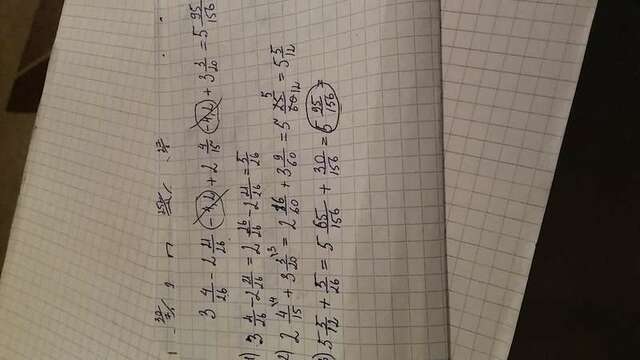 3 4/26 - 2 21/26 - 4,2 + 2 4/15 - 4,2 + 3 3/20 = 5 95/156
1) 3 4/26 - 2 21/26 = 2 26/26 - 2 21/26 = 5/26
2) 2 4/15 \4 + 3 3/20 \3 = 2 16/60 + 3 9/60 = 5 25/60 5 12 = 5 5/12
3) 5 5/12 + 5/26 = 5 65/156 + 30/156 = 5 95/156 =